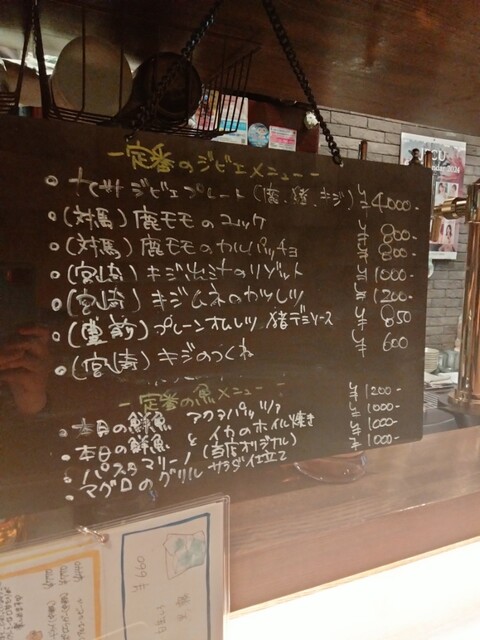 ー定番のジビエメニューー
ジビエプレート(鹿、猪、キジ) ¥4,000-
・(対馬)鹿モモのユッケ ¥800-
・(対馬)鹿モモのカルパッチョ ¥800-
・(宮崎)キジのリゾット ¥1000-
・(宮崎)キジムネのカツレツ ¥1200-
・(豊前)プレーンオムレツ 猪デミソース ¥850
・(宮崎)キジのつくね ¥600
ー定番の魚メニューー
・本日の鮮魚 アクアパッツァ ¥1200-
・本日の鮮魚とイカのホイル焼き ¥1000-
・パスタマリーノ(当店オリジナル) ¥1000-
・マグロのグリル サラダ仕立て ¥1000-
¥660